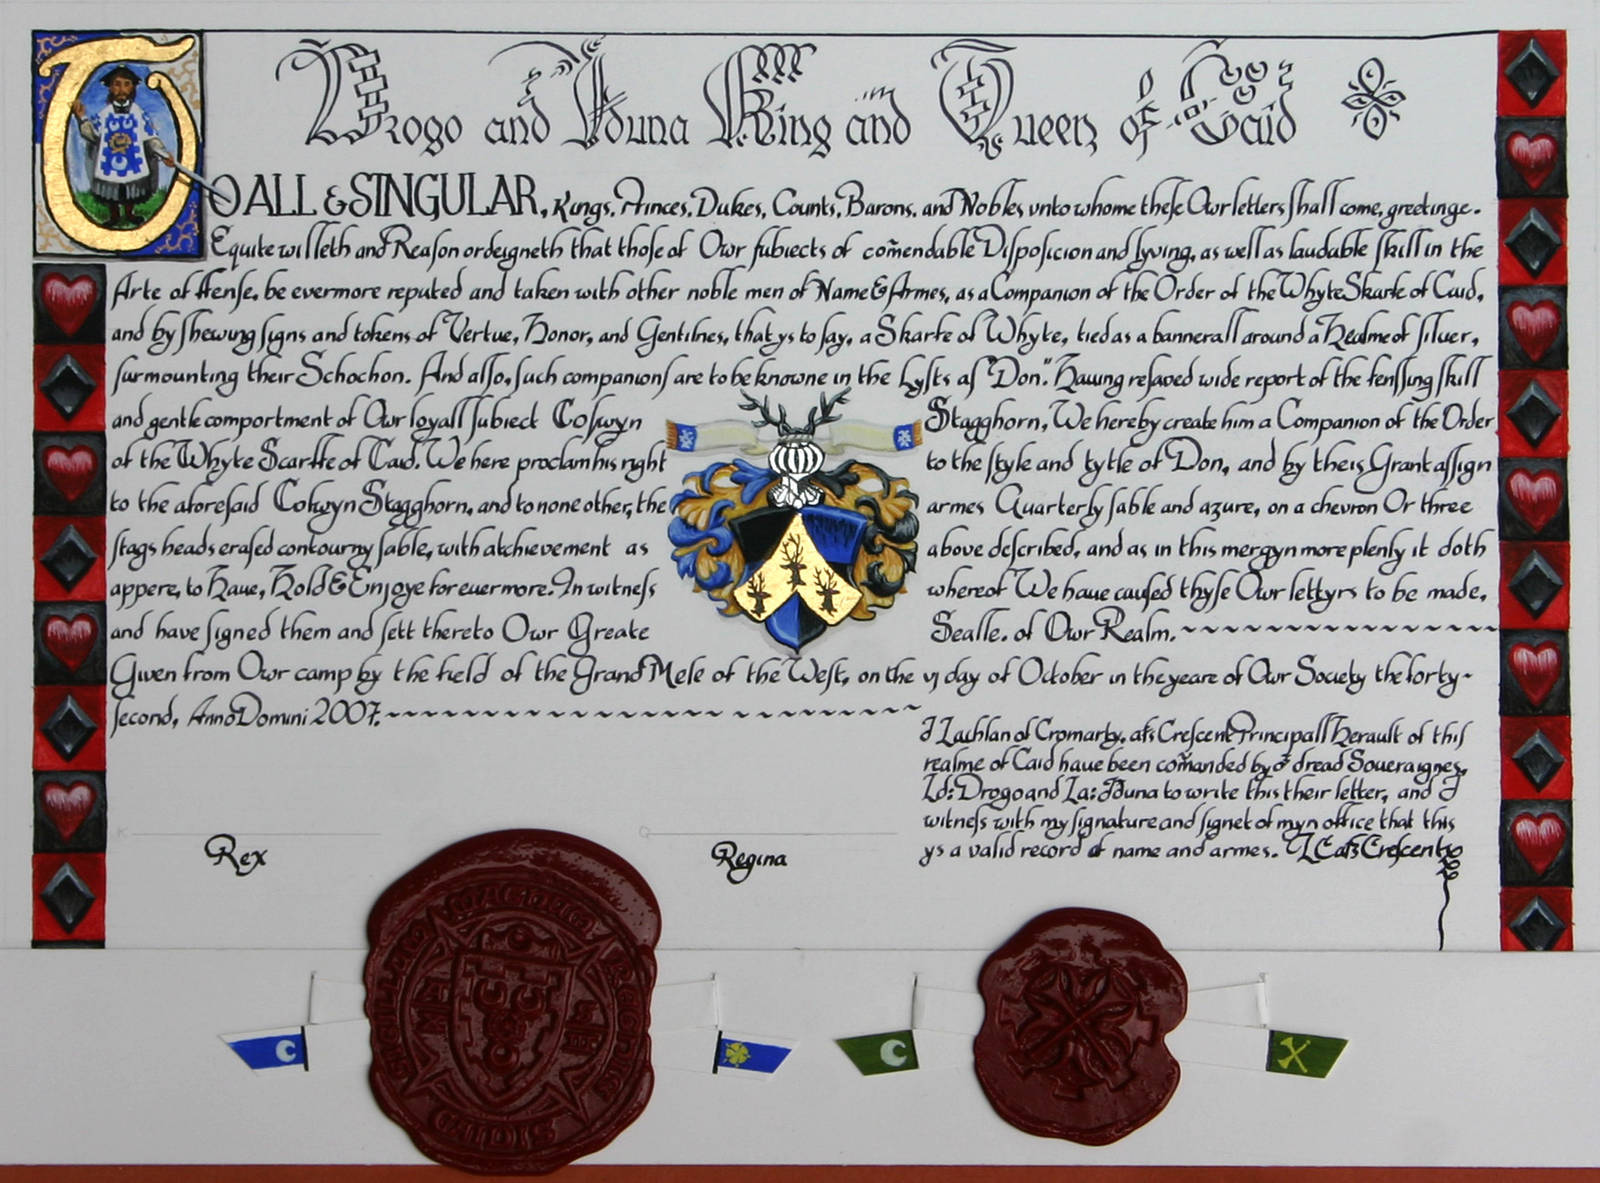 Drogo and Iduna King and Queen of Caid
TO ALL & SINGULAR, Kings, Princes, Dukes, Counts, Barons, and Nobles vnto whome these Owr letters shall come, greetinge.
Equite willeth and Reason ordeigneth that those of Owr subiects of com̃endable Disposicion and lyving, as well as laudable skill in the
Arte of ffense, be evermore reputed and taken with other noble men of Name & Armes, as a Companion of the Order of the Whyte Skarfe of Caid,
and by shewing signs and tokens of Vertue, Honor, and Gentilnes, that ys to say, a Skarfe of Whyte, tied as a bannerall around a Healme of silver,
surmounting their Schochon. And also, such companions are to be knowne in the Lysts as "Don." Hauing resaved wide report of the fenssing skill
and gentle comportment of Owr loyall subiect Colwyn Stagghorn, We hereby create him a Companion of the Order
of the Whyte Scarffe of Caid. We here proclam his right to the style and tytle of Don, and by theis Grant assign
to the aforesaid Colwyn Stagghorn, and to none other, the armes Quarterly sable and azure, on a chevron Or three
stags heads erased contourny sable, with atchievement as above described, and as in this mergyn more plenly it doth
appere, to Haue, Hold & Enjoye for euermore. In witness whereof We haue caused thyse Owr lettyrs to be made,
and have signed them and sett thereto Owr Greate Sealle. of Owr Realm.
Given from Owr camp by the field of the Grand Mele of the West, on the vj day of October in the yeare of Owr Society the forty-
second, Anno Domini 2007.
I Lachlan of Cromarty, als Crescent Principall Herault of this
realme of Caid haue been com̃anded by dread Soueraignes,
Ld: Drogo and La: Iduna to write this their letter, and I
witness with my signature and signet of myn office that this
ys a valid record of name and armes. als Crescent
Rex
Regina